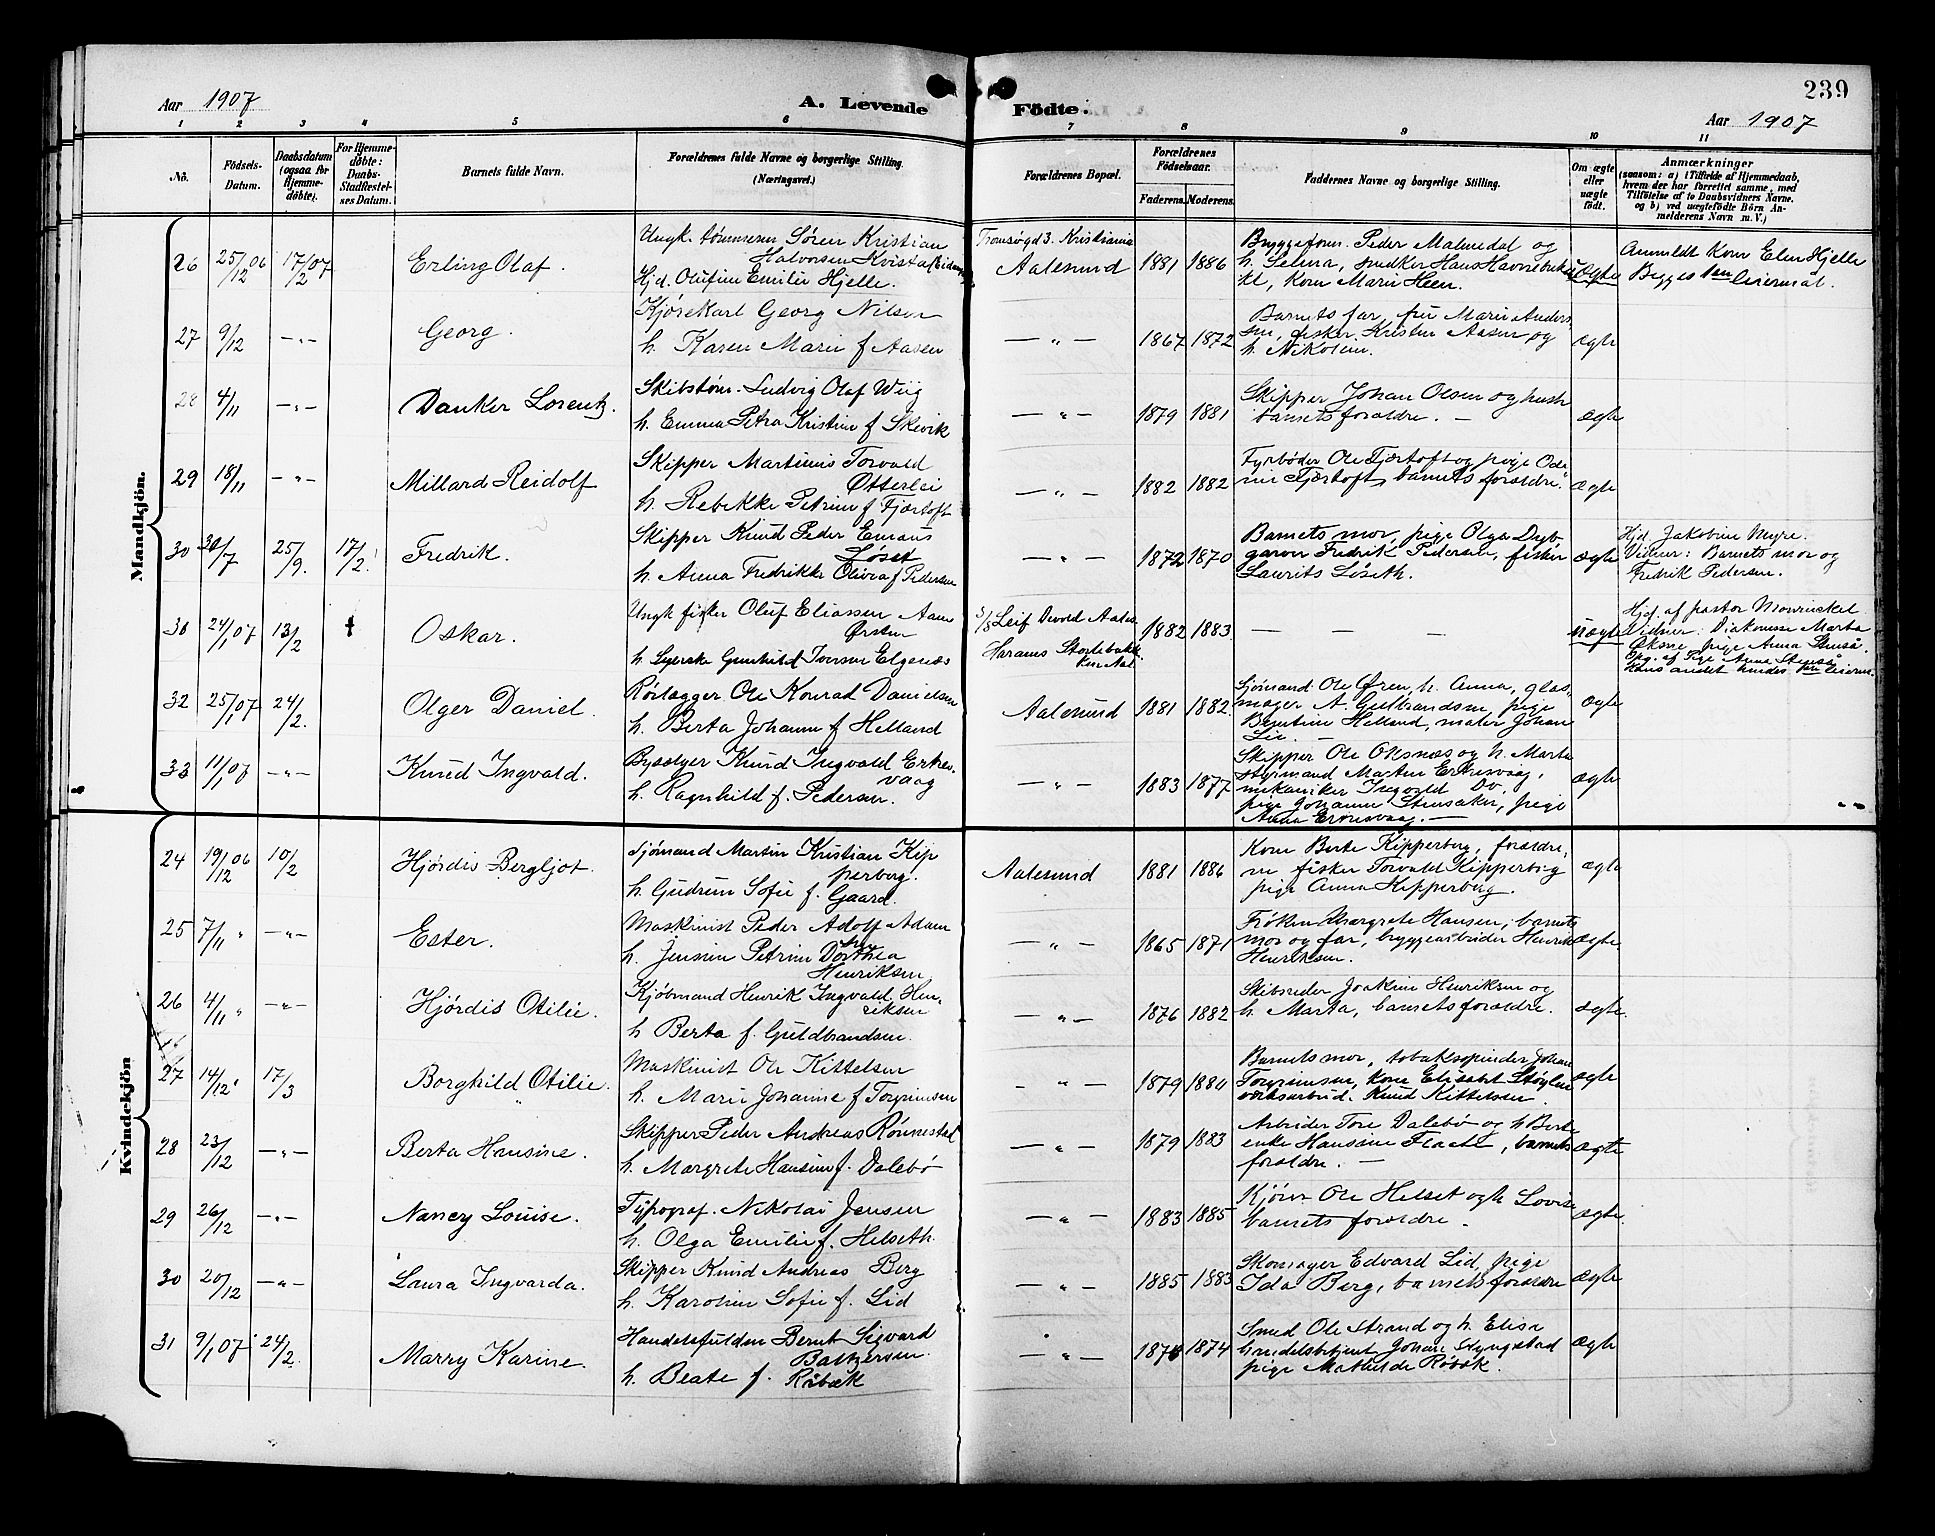 239
Aar 1907
A. Levende Födte.
Aar 1907
1 2 3 4 5 6 7 8 9 10 11
Nö.
Födsels-Datum.
Daabsdatum (ogsaa for Hjemmedöbte).
For Hjemmedöbte: Daabs-Stadfæstelses Datum.
Barnets fulde Navn.
Forældrenes fulde Navne og borgerlige Stilling.
(Næringsvei.)
Forældrenes Bopæl.
Forældrenes Födselsaar.
Faderens. Moderens.
Faddernes Navne og borgerlige Stilling.
Om ægte eller uægte födt.
Anmærkninger
(saasom: a) i Tilfælde af Hjemmedaab,
hvem der har forrettet samme, med
Tilföielse af to Daabsvidners Navne.
og b) ved uægtefödte Börn Anmelderens Navn m. V.)
Mandkjön.
26 25/12 06 17/2 07 Erling Olaf.
Ungk. tømmerm Søren Kristian
Halvorsen Kvistad
Hj. Olufine Emilie Hjelle.
Tromsøgd 3. Kristiania
Aalesund 1881 1886
Byggeform. Peder Malmedal og
h. Selma, snedker Hans Havnebakk
kone Marie Heen.
Uægte
Anmeldt Kone Elen Hjelle
Begges 1ste leiermål.
27 9/12 —"— Georg.
Kjørekarl Georg Nilsen
h. Karen Marie f Aasen
— " — 1867 1872
Barnets far, fru Marie Anders
sen, fisker Kristen Aasen og
h. Nikoline.
ægte
28 4/11 —"— Danker Lorentz.
Skibstøm. Ludvig Olaf Wiig
h. Emma Petra Kristine f Skevik
— " — 1879 1881
Skipper Johan Olsen og hustr
barnets forældre. —
ægte
29 18/11 —"— Millard Reidolf
Skipper Martinus Torvald
Otterlei
h. Rebekke Petrine f Fjærtoft
— " — 1882 1882
Fyrbøder Ole Fjærtoft og pige Ode
nie Fjærtoft, barnets forældre.
ægte
30 30/7 25/9. 17/2. Fredrik.
Skipper Knud Peder Emaus
Løset
h. Anna Fredrikke Oliva f Pedersen
— " — 1872 1870
Barnets mor, pige Olga Dryb
garon Fredrik Pedersen, fisker
Laurits Løseth.
ægte
Hjd. Jakobine Myre.
Vidner: Barnets mor og
Fredrik Pedersen.
30 24/1 07 13/2 Oskar.
Ungk fisker Oluf Eliassen Aam
Ørsten
h. Syerske Gunhild Iversen Elgenes
S/S Leif Devold Aales
Harams Storlebakk
1882 1883
— — —
Uægte
Hjd. af pastor Monrinckel.
Vidner: Diakonisse Marta
Øksne, pige Anna Stenså.
Opg. af Pige Anna Stenså
Hans andet hendes 1ste leierm.
32 25/1 07 24/2. Olger Daniel.
Rørlægger Ole Konrad Danielsen
h. Berta Johanne f Helland
Aalesund 1881 1882.
Sjømand Ole Øren, h. Anna, glas-
mager A. Guldbrandsen, pige
Berntine Helland, maler Johan
Lie. —
ægte
33 11/1 07 —"— Knud Ingvald.
Bysælger Knud Ingvald Erkes-
vaag
h. Ragnhild f. Pedersen.
— " — 1883 1877
Skipper Ole Oksnæs og h. Marte
styrmand Martin Erknesvaag,
mekaniker Ingvald Do,
pige Johanne Stensaker, pige
Anna Erknesvaag. —
ægte
Kvindekjön
24 19/12 06 10/2 Hjördis Bergljot.
Sjömand Martin Kristian Kip
perberg.
h. Gudrun Sofie f. Gaard.
Aalesund 1881 1886
Kone Berte Kipperberg, forældre-
ne fisker Torvald Kipperberg
pige Anna Kipperberg.
ægte
25 7/11 " —"— Ester.
Maskinist Peder Adolf Adam
sen
h. Jensine Petrine Dorthea
Henriksen
— " — 1865 1871
Frøken Margrete Hansen, barnets
mor og far, bryggearbeider Henrik
Henriksen.
ægte
26 4/11 " —"— Hjördis Otilie.
Kjöbmand Henrik Ingvald Hen-
riksen
h Berta f. Guldbrandsen.
— " — 1876 1882
Skibsreder Joakim Henriksen og
h. Marta, barnets forældre.
ægte.
27 14/12 " 17/3 Borghild Otilie.
Maskinist Ole Kittelsen
h. Marie Johanne f Torgrimsen
— " — 1879 1880
Barnets mor, tobakspinder Johan
Torgrimsen, kone Elisabet Støylen
verksarbeid. Knud Kittelsen.
ægte
28 23/12 —"— Berta Hansine.
Skipper Peder Andreas Rönnestad
h. Margrete Hansine f. Dalebø
— " — 1879 1883
Arbeider Tore Dalebø og h Berte
enke Hansine Flaate, barnets
forældre. —
ægte
29 26/12 —"— Nancy Louise.
Typograf. Nikolai Jensen
h. Olga Emilie f. Helseth.
— " — 1883 1885
Kjører Ole Helset og h Lovise
barnets forældre.
ægte.
30 20/12 —"— Laura Ingvarda.
Skipper Knud Andreas Berg
h. Karoline Sofie f. Lid
— " — 1885 1883
Skomager Edvard Lid, pige
Ida Berg, barnets forældre
ægte
31 9/1 07 24/2. Marry Karine.
Handelsfuldm Bernt Sigvard
Baltzersen.
h. Beate f. Råbæk
— " — 1876 1874
Smed Ole Strand og h. Elisa
handelsbetjent Johan Myngstad
pige Mathilde Røbæk.
ægte